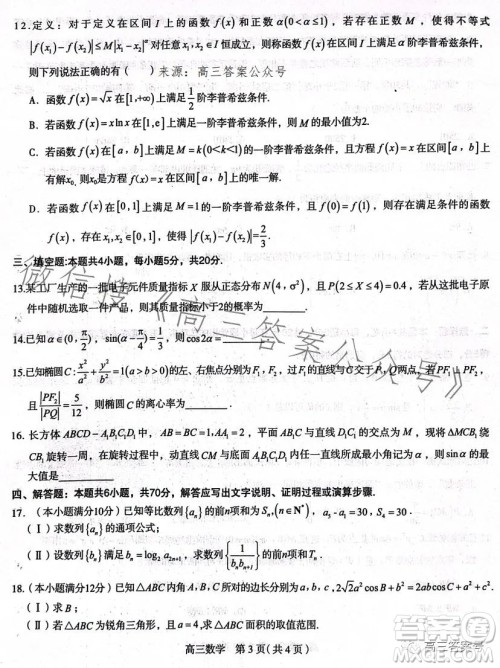 12.定义：对于定义在区间 I 上的函数 f(x) 和正数 α(0<α≤1)，若存在正数 M，使得不等式
|f(x₁)-f(x₂)|≤M|x₁-x₂|^α 对任意 x₁,x₂∈I 恒成立，则称函数 f(x) 在区间 I 上满足 α 阶李普希兹条件，
则下列说法正确的有（ ） 来源：高三答案公众号
A．函数 f(x)=√x 在[1,+∞) 上满足 1/2 阶李普希兹条件．
B．若函数 f(x)=xlnx 在[1,e] 上满足一阶李普希兹条件，则 M 的最小值为2．
C．若函数 f(x) 在[a，b] 上满足 M=k(0<k<1) 的一阶李普希兹条件，且方程 f(x)=x 在[a，b] 上
有解x₀，则x₀是方程 f(x)=x 在[a，b] 上的唯一解．
D．若函数 f(x) 在[0,1] 上满足 M=1 的一阶李普希兹条件，且 f(0)=f(1)，
存在 x₁,x₂∈[0,1]，使 |f(x₁)-f(x₂)|=2/3
三、填空题:本题共4小题，每小题5分，共20分．
13.某工厂生产的一批电子元件质量指标 X 服从正态分布 N(4,σ²)，且 P(2≤X≤4)=0.4，若从这批电子原
件中随机选取一件产品，则其质量指标小于2的概率为
14.已知 α∈(0, ，sin(α-π/4)=1/3，则 cos2α=
15.已知椭圆 C:x²/a²+y²/b²=1(a>b>0) 的左、右焦点分别为F₁，F₂，过F₁的直线与C交于P，Q两点，若PF₁⊥PF₂，且
|PF₂|/|PQ|=5/12，则椭圆 C 的离心率为
16．长方体 ABCD-A₁B₁C₁D₁ 中，平面 AB₁C 与直线 D₁C₁ 的交点为 M，现将 △MCB₁ 绕 CB₁
旋转一周，在旋转过程中，动直线 CM 与底面 A₁B₁C₁D₁ 内任一直线所成最小角记为 α，则 sinα 的最
大值是
四、解答题：本题共6小题，共70分，解答应写出文字说明、证明过程或演算步骤.
17.（本小题满分10分）已知等比数列{aₙ} 的前n项和为 Sₙ,(n∈N*)，a₃-a₁=30，S₄=90．
（Ⅰ）求数列{aₙ} 的通项公式；
（Ⅱ）设数列{bₙ} 满足 bₙ= ，求数列{1/(bₙbₙ₊₁)} 的前n项和 Tₙ．
18.（本小题满分12分）已知 △ABC 内角 A，B，C 所对的边长分别为 a，b，c，2√2a²cosB+b²=2abcosC+a²+c²．
（Ⅰ）求 B；
（Ⅱ）若 △ABC 为锐角三角形，且 a=4，求 △ABC 面积的取值范围．
高三数学 第 3 页（共 4 页）
微信搜《高三答案公众号》
高三答案号